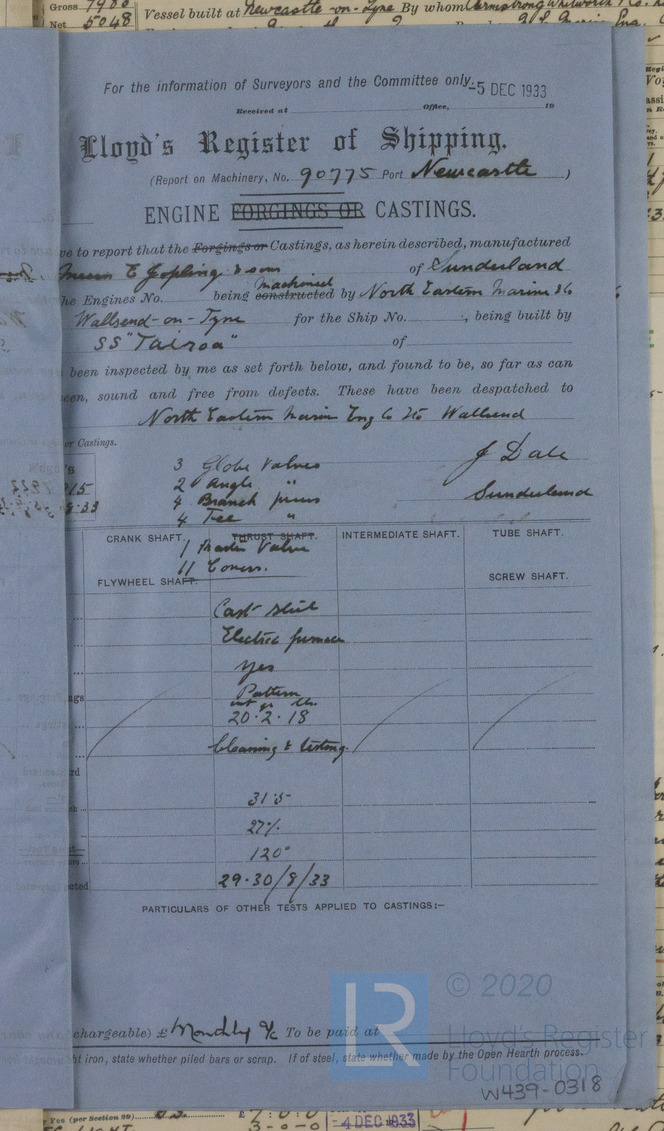 Gross 7980 Vessel built at Newcastle-on-Tyne By whom Armstrong Whitworth
Net 5048
For the information of Surveyors and the Committee only.
-5 DEC 1933
Received at Office, 19
Lloyd's Register of Shipping.
(Report on Machinery, No. 90775 Port Newcastle)
ENGINE FORGINGS OR CASTINGS.
ve to report that the Forgings or Castings, as herein described, manufactured
Messrs E Jopling & sons of Sunderland
machined
he Engines No. being constructed by North Eastern Marine
Wallsend-on-Tyne for the Ship No. , being built by
SS "Tairoa" of
been inspected by me as set forth below, and found to be, so far as can
een, sound and free from defects. These have been despatched to
North Eastern Marine Eng Co Ltd Wallsend
or Castings.
3 Globe Valves J Dale
2 Angle "
4 Branch pieces Sunderland
4 Tee "
CRANK SHAFT. THRUST SHAFT. INTERMEDIATE SHAFT. TUBE SHAFT.
1 Master Valve
11 Covers.
FLYWHEEL SHAFT. SCREW SHAFT.
Cast steel
Electric furnace
Yes
Pattern
20.2.18
Cleaning & testing.
31.5
27%
120°
29.30/8/33
PARTICULARS OF OTHER TESTS APPLIED TO CASTINGS:—
chargeable) £ Monthly a/c To be paid at
ht iron, state whether piled bars or scrap. If of steel, state whether made by the Open Hearth process.
LR
© 2020
Lloyd's Register
Foundation
W439-0318
Yes (per Section 29)
£ 7:0:0
3-0-0
-4 DEC 1933